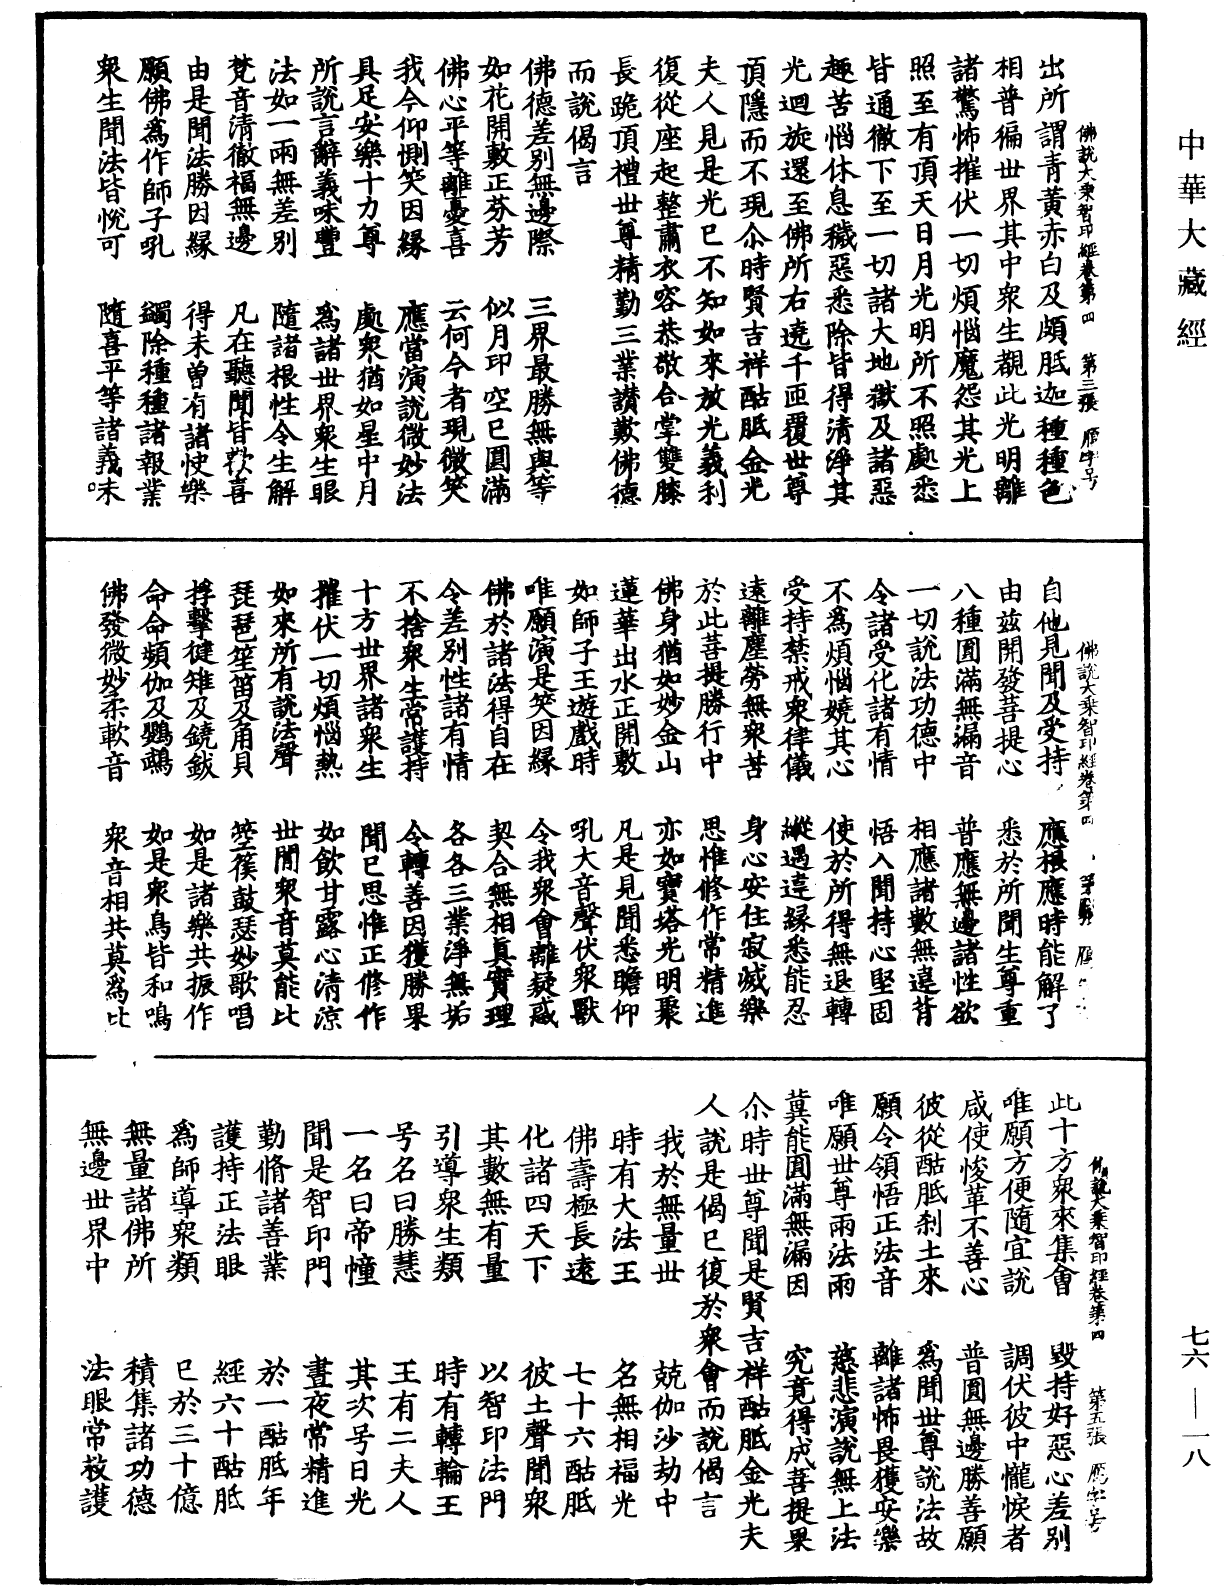 中華大藏經
佛說大乘智印經卷第四　第三張　鴈字号
出所謂青黃赤白及頗胝迦種種色
相普徧世界其中衆生覩此光明離
諸驚怖摧伏一切煩惱魔怨其光上
照至有頂天日月光明所不照處悉
皆通徹下至一切諸大地獄及諸惡
趣苦惱休息穢惡悉除皆得清淨其
光迴旋還至佛所右遶千匝覆世尊
頂隱而不現尒時賢吉祥酤胝金光
夫人見是光已不知如來放光義利
復從座起整肅衣容恭敬合掌雙膝
長跪頂禮世尊精勤三業讃歎佛德
而說偈言
佛德差別無邊際　三界最勝無與等
如花開敷正芬芳　似月印空已圓滿
佛心平等離憂喜　云何今者現微笑
我今仰惻笑因緣　應當演說微妙法
具足安樂十力尊　處衆猶如星中月
所說言辭義味豐　爲諸世界衆生眼
法如一雨無差別　隨諸根性令生解
梵音清徹福無邊　凡在聽聞皆歡喜
由是聞法勝因緣　得未曾有諸快樂
願佛爲作師子吼　蠲除種種諸報業
衆生聞法皆悅可　隨喜平等諸義味
佛說大乘智印經卷第四　第四張　鴈
自他見聞及受持　應根應時能解了
由茲開發菩提心　悉於所聞生尊重
八種圓滿無漏音　普應無邊諸性欲
一切說法功德中　相應諸數無違背
令諸受化諸有情　悟入聞持心堅固
不爲煩惱嬈其心　使於所得無退轉
受持禁戒衆律儀　縱遇違緣悉能忍
遠離塵勞無衆苦　身心安住寂滅樂
於此菩提勝行中　思惟修作常精進
佛身猶如妙金山　亦如寶塔光明聚
蓮華出水正開敷　凡是見聞悉瞻仰
如師子王遊戲時　吼大音聲伏衆獸
唯願演是笑因緣　令我衆會離疑惑
佛於諸法得自在　契合無相眞實理
令差別性諸有情　各各三業淨無垢
不捨衆生常護持　令轉善因獲勝果
十方世界諸衆生　聞已思惟正修作
摧伏一切煩惱熱　如飲甘露心清涼
如來所有說法聲　世閒衆音莫能比
琵琶笙笛及角貝　箜篌鼓瑟妙歌唱
捊擊揵雉及鐃鈸　如是諸樂共振作
命命頻伽及鸚鵡　如是衆鳥皆和鳴
佛發微妙柔軟音　衆音相共莫爲比
佛說大乘智印經卷第四　第五張　鴈字号
此十方衆來集會　毀持好惡心差別
唯願方便隨宜說　調伏彼中儱悷者
咸使悛革不善心　普圓無邊勝善願
彼從酤胝刹土來　爲聞世尊說法故
願令領悟正法音　離諸怖畏獲安樂
唯願世尊雨法雨　慈悲演說無上法
冀能圓滿無漏因　究竟得成菩提果
尒時世尊聞是賢吉祥酤胝金光夫
人說是偈已復於衆會而說偈言
我於無量世　兢伽沙劫中
時有大法王　名無相福光
佛壽極長遠　七十六酤胝
化諸四天下　彼土聲聞衆
其數無有量　以智印法門
引導衆生類　時有轉輪王
号名曰勝慧　王有二夫人
一名曰帝幢　其次号日光
聞是智印門　晝夜常精進
勤脩諸善業　於一酤胝年
護持正法眼　經六十酤胝
爲師導衆類　已於三十億
無量諸佛所　積集諸功德
無邊世界中　法眼常救護
七六—一八